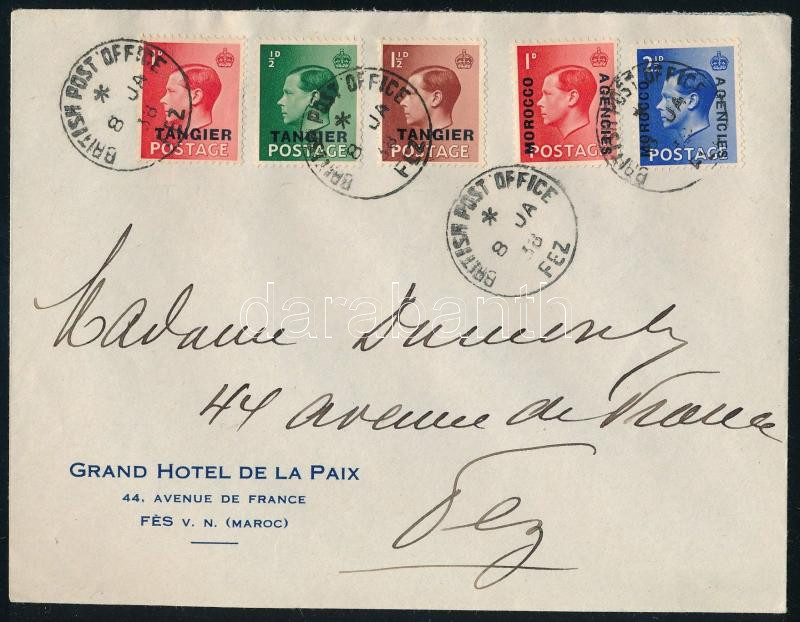 BRITISH POST OFFICE
* 8 JA 38
FEZ
1D
TANGIER
POSTAGE
½D
TANGIER
POSTAGE
BRITISH POST OFFICE
* 8 JA 38
FEZ
1½D
TANGIER
POSTAGE
1D
MOROCCO AGENCIES
POSTAGE
2½D
MOROCCO AGENCIES
POSTAGE
BRITISH POST OFFICE
* 8 JA 38
FEZ
darabanth
Madame
44 avenue de France
Fez
GRAND HOTEL DE LA PAIX
44, AVENUE DE FRANCE
FÈS V. N. (MAROC)